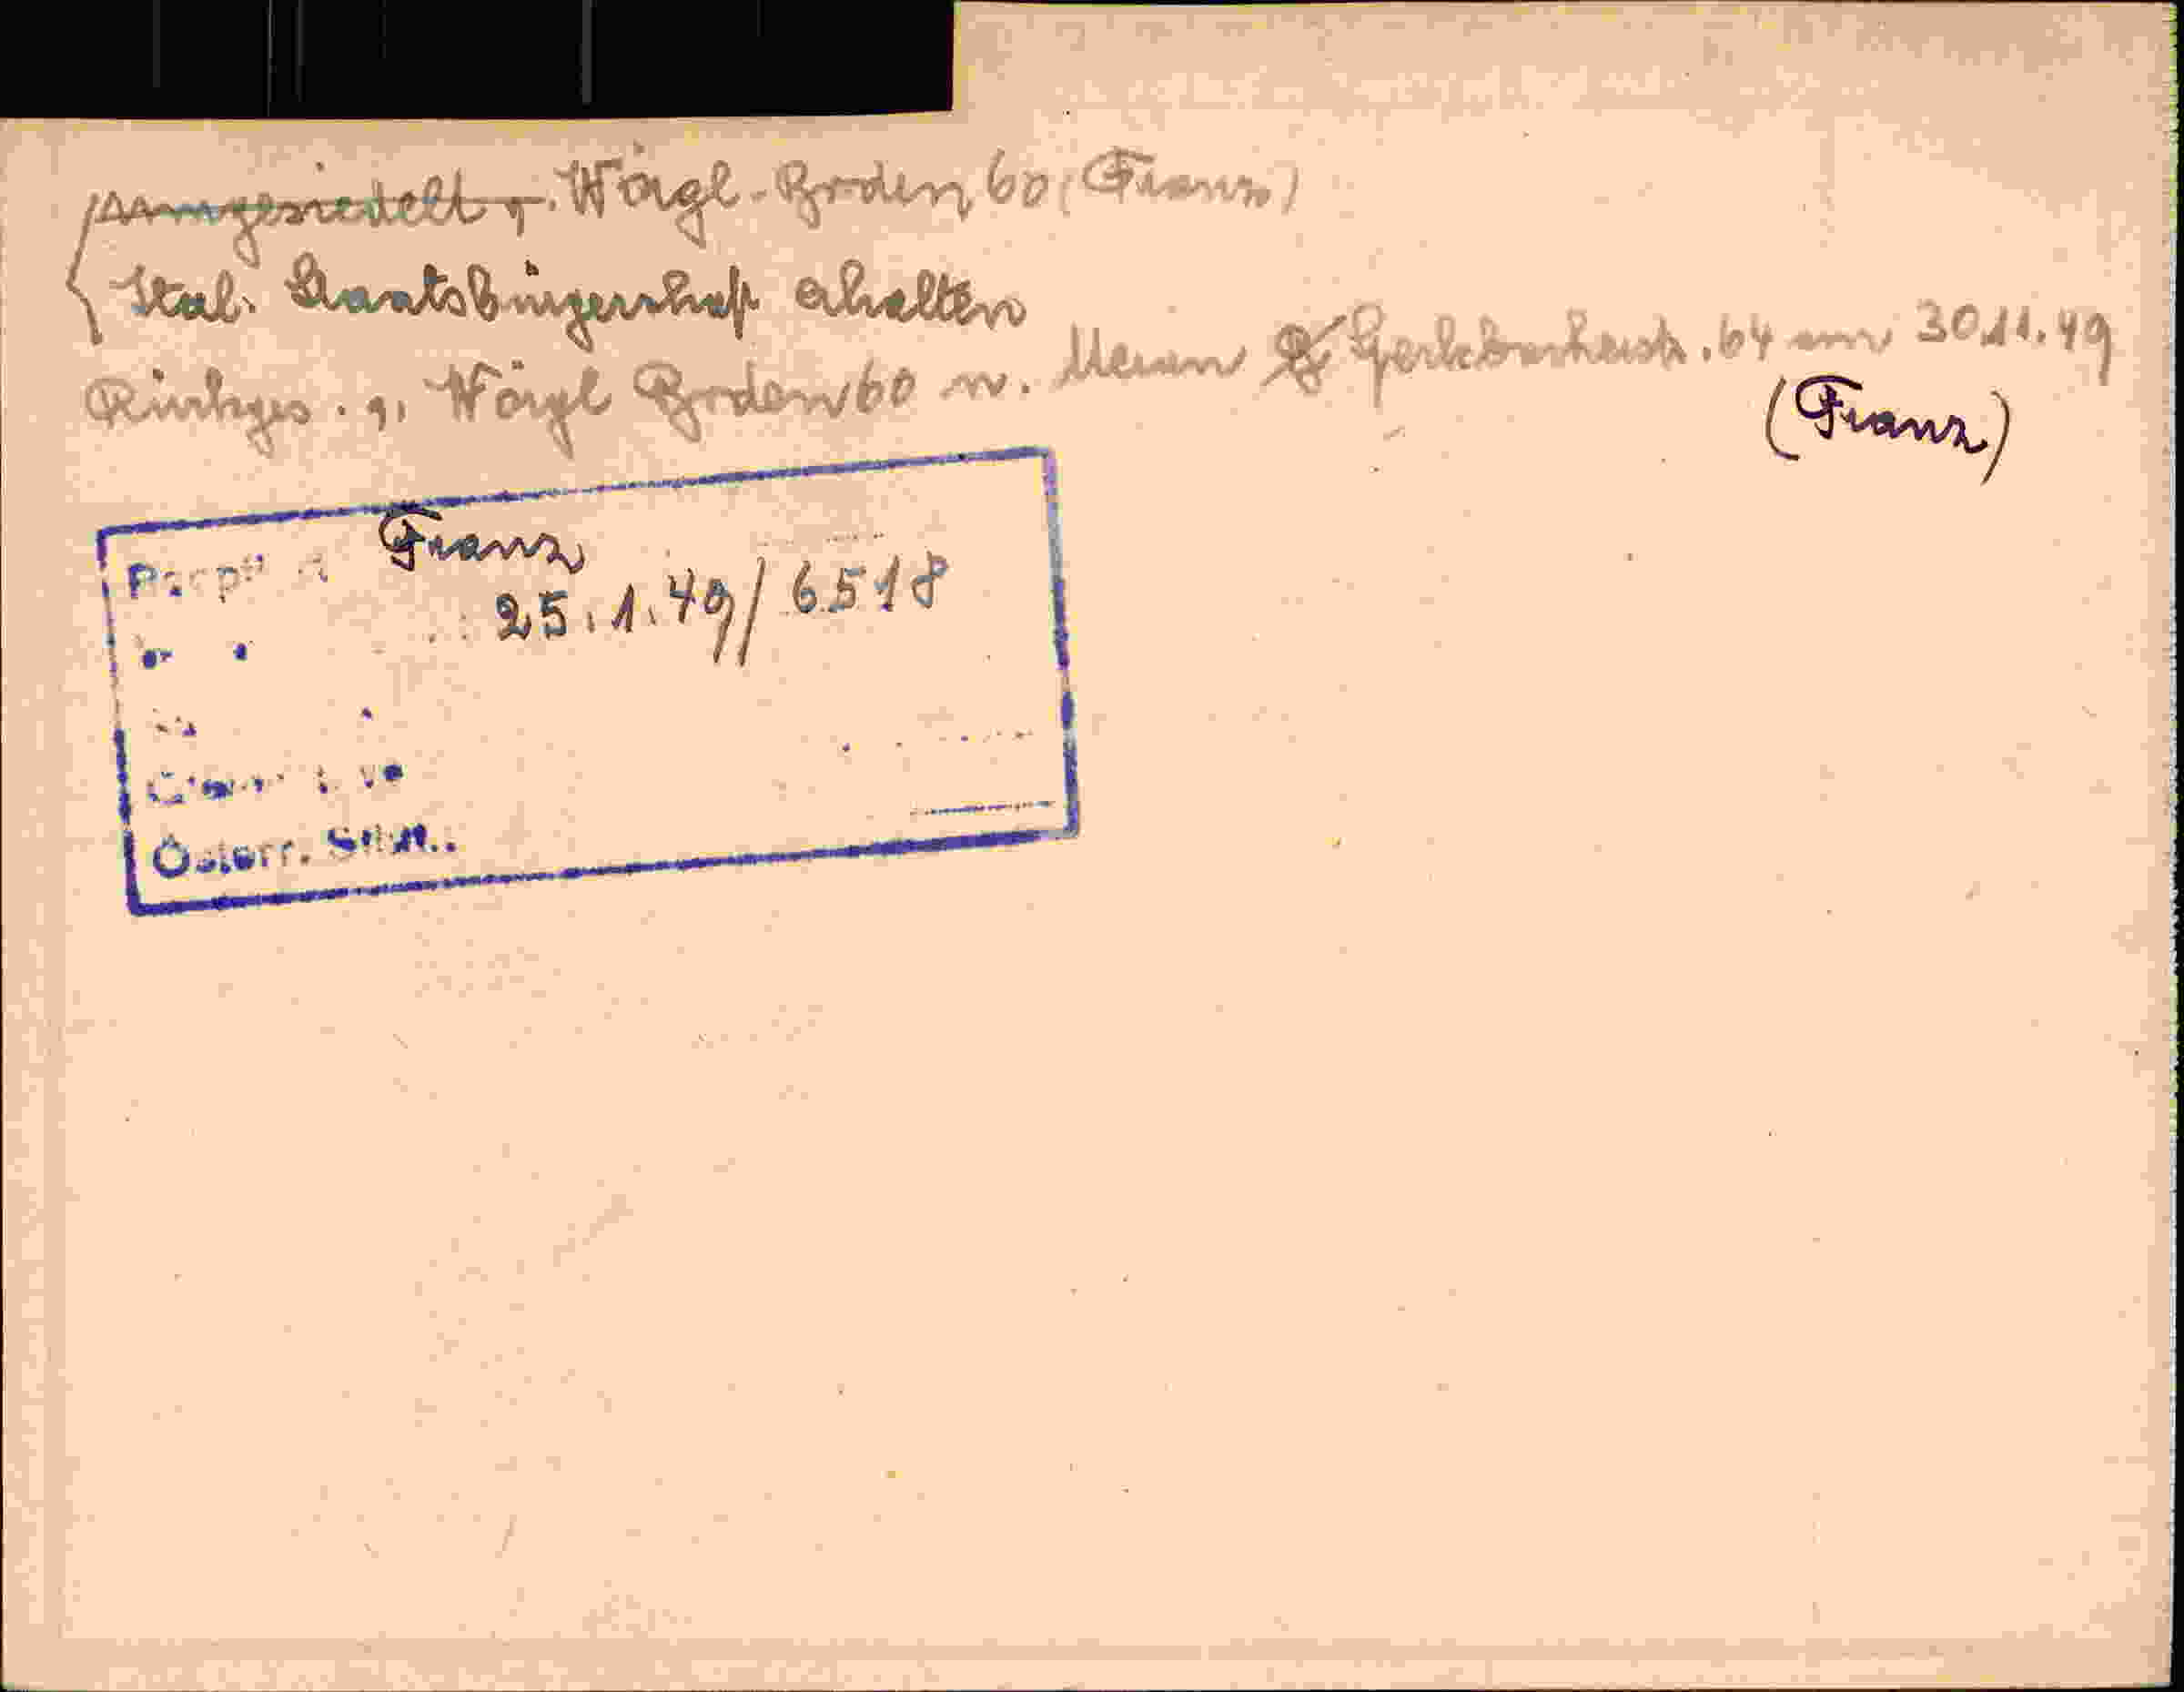 umgesiedelt v. Wörgl-Boden 60 (Franz)
Ital. Staatsbürgerschaft erhalten
Rückges. v. Wörgl Boden 60 n. Meran 64 am 30.11.49
(Franz)
Franz
25.1.49/6518
Österr.